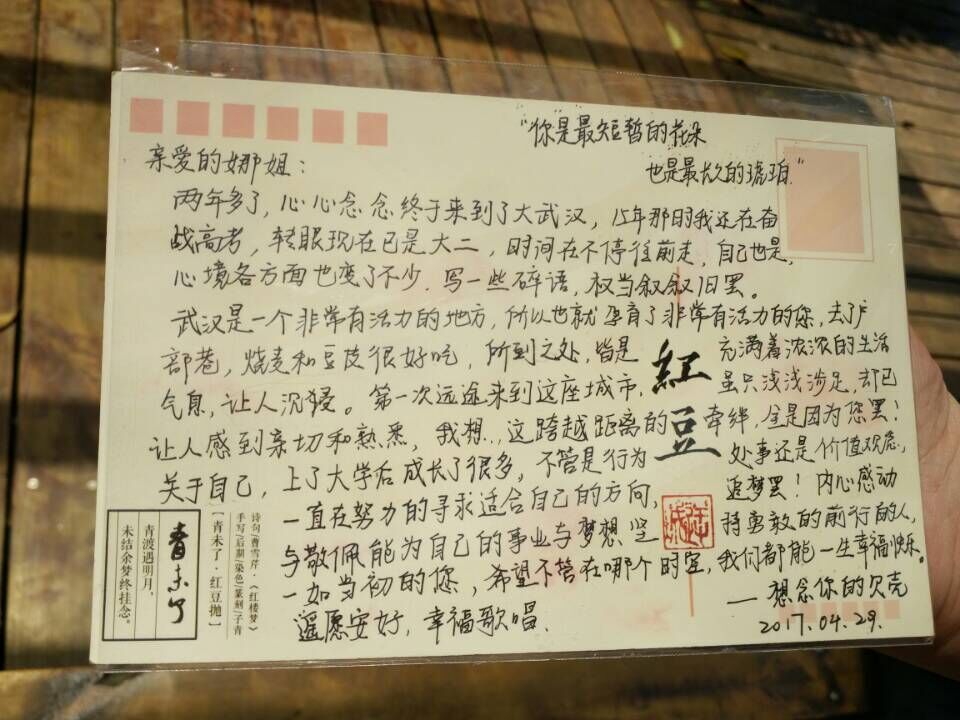 “你是最短暂的花朵
也是最长久的琥珀”
亲爱的娜姐：
两年多了，心心念念终于来到了大武汉，15年那时我还在奋
战高考，转眼现在已是大二，时间在不停往前走，自己也是，
心境各方面也变了不少.写一些碎语，权当叙叙旧罢。
武汉是一个非常有活力的地方，所以也就孕育了非常有活力的您，去了户
部巷，烧麦和豆皮很好吃，所到之处，皆是充满着浓浓的生活
气息，让人沉浸。第一次远途来到这座城市，虽只浅浅涉足，却已
让人感到亲切和熟悉，我想，这跨越距离的牵绊，全是因为您罢！
关于自己，上了大学后成长了很多，不管是行为处事还是价值观念，
一直在努力的寻求适合自己的方向，追梦罢！内心感动
与敬佩能为自己的事业与梦想坚持勇敢的前行的人，
一如当初的您，希望不管在哪个时空，我们都能一生幸福快乐。
遥愿安好，幸福歌唱.
——想念你的贝壳
2017.04.29.
紅
豆
诗句/曹雪芹·《红楼梦》
手写/后期/染色/篆刻/子青
【青未了·红豆抛】
青未了
青渡遇明月，
未结余梦终挂念。